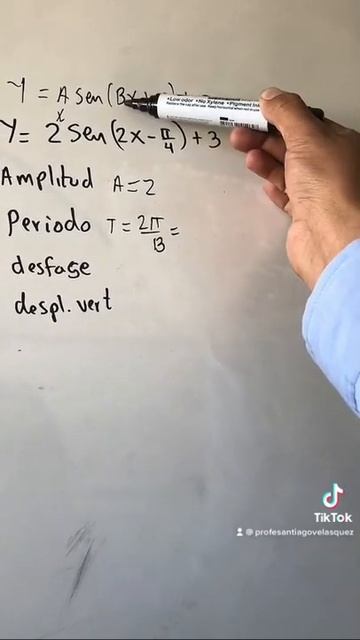 Y = A Sen(Bx
Y = 2 Sen(2x - π/4) + 3
Amplitud A = 2
Periodo T = 2π/B =
desfage
despl. vert
•Low odor •No Xylene •Pigment Ink
TikTok
@profesantiagovelasquez